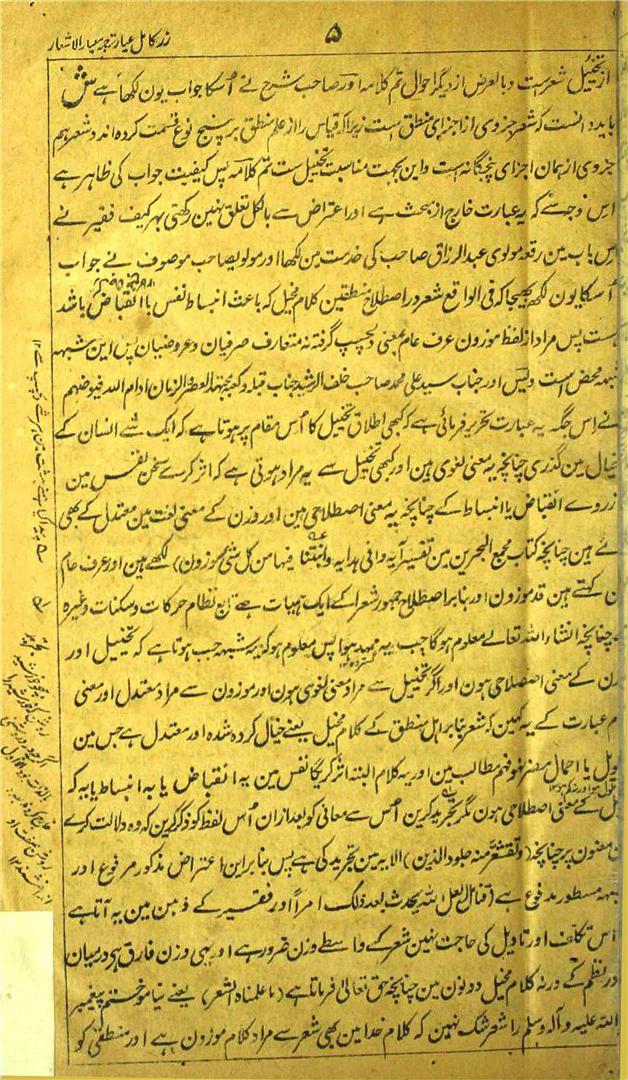 ۵
زر کامل عیار ترجمہ معیار الاشعار
از تخییل شعرست و بالعرض از دیگر احوال تم کلامہ اور صاحب شرح نے اُسکا جواب یون لکھا ہے ش
باید دانست کہ شعر جزوی از اجزای منطق است زیرا کہ قیاس را از علم منطق بر پنج نوع قسمت کردہ اند و شعر ہم
جزوی از ہمان اجزای پنجگانہ است و این بجہت مناسبت تخییل ست تم کلامہ پس کیفیت جواب کی ظاہر ہے
اس وجہ سے کہ یہ عبارت خارج از بحث ہے اور اعتراض سے بالکل تعلق نہین رکھتی بہر کیف فقیر نے
اس باب مین رقعہ مولوی عبد الرزاق صاحب کی خدمت مین لکھا اور مولویصاحب موصوف نے جواب
اُسکا یون لکھ بھیجا کہ فی الواقع شعر در اصطلاح منطقین کلام مخیل کہ باعث انبساط نفس یا انقباض باشد
ہست پس مراد از لفظ موزون عرف عام بمعنی دلچسپ گرفتہ نہ متعارف صرفیان و عروضیان پس این شبہہ
شبہہ محض است و لیس اور جناب سید علی محمد صاحب خلف الرشید جناب قبلہ و کعبہ مجتہد العصر و الزمان ادام اللہ فیوضہم
نے اس جگہ یہ عبارت تحریر فرمائی ہے کہ کبھی اطلاق تخییل کا اُس مقام پر ہوتا ہے کہ ایک شے انسان کے
خیال مین گذری چنانچہ یہ معنی لغوی ہین اور کبھی تخییل سے یہ مراد ہوتی ہے کہ اثر کرے سخن نفس مین
از روے انقباض یا انبساط کے چنانچہ یہ معنی اصطلاحی ہین اور وزن کے معنی لغت مین معتدل کے بھی
آئے ہین چنانچہ کتاب مجمع البحرین مین تفسیر آیہ وافی ہدایہ (وانبتنا فیہا من کل شیٔ موزون) لکھے ہین اور عرف عام
مین کہتے ہین قد موزون اور بنا بر اصطلاح جمہور شعرا کے ایک ہیات ہے تابع نظام حرکات و سکنات وغیرہ
چنانچہ انشاء اللہ تعالے معلوم ہوگا جب یہ ممہد ہوا پس معلوم ہو کہ یہ شبہہ جب ہوتا ہے کہ تخییل اور
وزن کے معنی اصطلاحی ہون اور اگر تخییل سے مراد معنی لغوی ہون اور موزون سے مراد معتدل اور معنی
عبارت کے یہ کہین کہ شعر بنا بر اہل منطق کے کلام مخیل یعنے خیال کردہ شدہ اور معتدل ہے جس مین
طول یا اجمال مضر نہو فہم مطالب مین اور یہ کلام البتہ اثر کریگا نفس مین یہ انقباض یا بہ انبساط یا یہ کہ
کے معنی اصطلاحی ہون مگر تجرید کرین اُس سے معانی کو بعد ازان اُس لفظ کو ذکر کرین کہ وہ دلالت کرے
مضمون پر چنانچہ (و تقشعر منہ جلود الذین) الایہ مین تجرید کی ہے پس بنا بر این اعتراض مذکور مرفوع اور
شبہہ مسطور مدفوع ہے (فتامل لعل اللہ یحدث بعد ذلک امرا) اور فقیر کے ذہن مین یہ آتا ہے
اس تکلف اور تاویل کی حاجت نہین شعر کے واسطے وزن ضرور ہے اور یہی وزن فارق ہی درمیان
اور نظم کے ورنہ کلام مخیل دونون مین چنانچہ حق تعالی فرماتا ہے (ما علمناہ الشعر) یعنے نیاموختیم پیغمبر
اللہ علیہ و آلہ وسلم را شعر شک نہین کہ کلام خدا مین بھی شعر سے مراد کلام موزون ہے اور منطقی کو